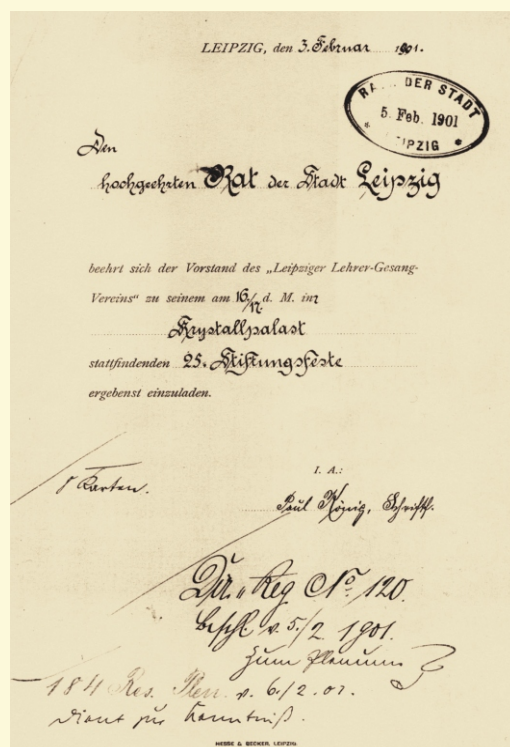 LEIPZIG, den 3. Februar 1901.
RAT DER STADT
5. Feb. 1901
LEIPZIG
Den
hochgeehrten Rat der Stadt Leipzig
beehrt sich der Vorstand des „Leipziger Lehrer-Gesang-
Vereins“ zu seinem am 16/17. d. M. im
Krystallpalast
stattfindenden 25. Stiftungsfeste
ergebenst einzuladen.
I. A.:
8 Karten.
Paul König, Schriftf.
Reg No 120.
Beschl. v. 5/2. 1901.
Zum Plenum
184 Res. Plen. v. 6/2. 01.
dient zur Kenntniß.
HESSE & BECKER, LEIPZIG.